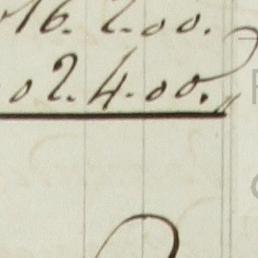 16. 2.00.
02. 4.00.